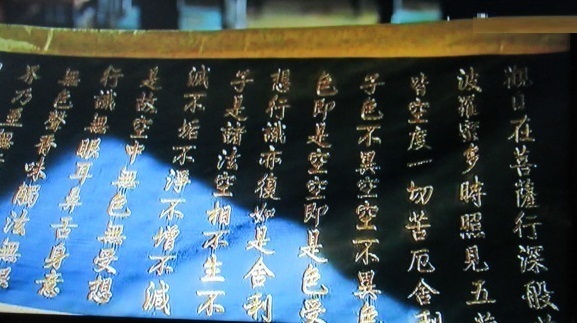 觀自在菩薩行深般
波羅蜜多時照見五
皆空度一切苦厄舍利
子色不異空空不異色
色即是空空即是色受
想行識亦復如是舍利
子是諸法空相不生不
滅不垢不淨不增不減
是故空中無色無受想
行識無眼耳鼻舌身意
無色聲香味觸法無眼
界乃至無